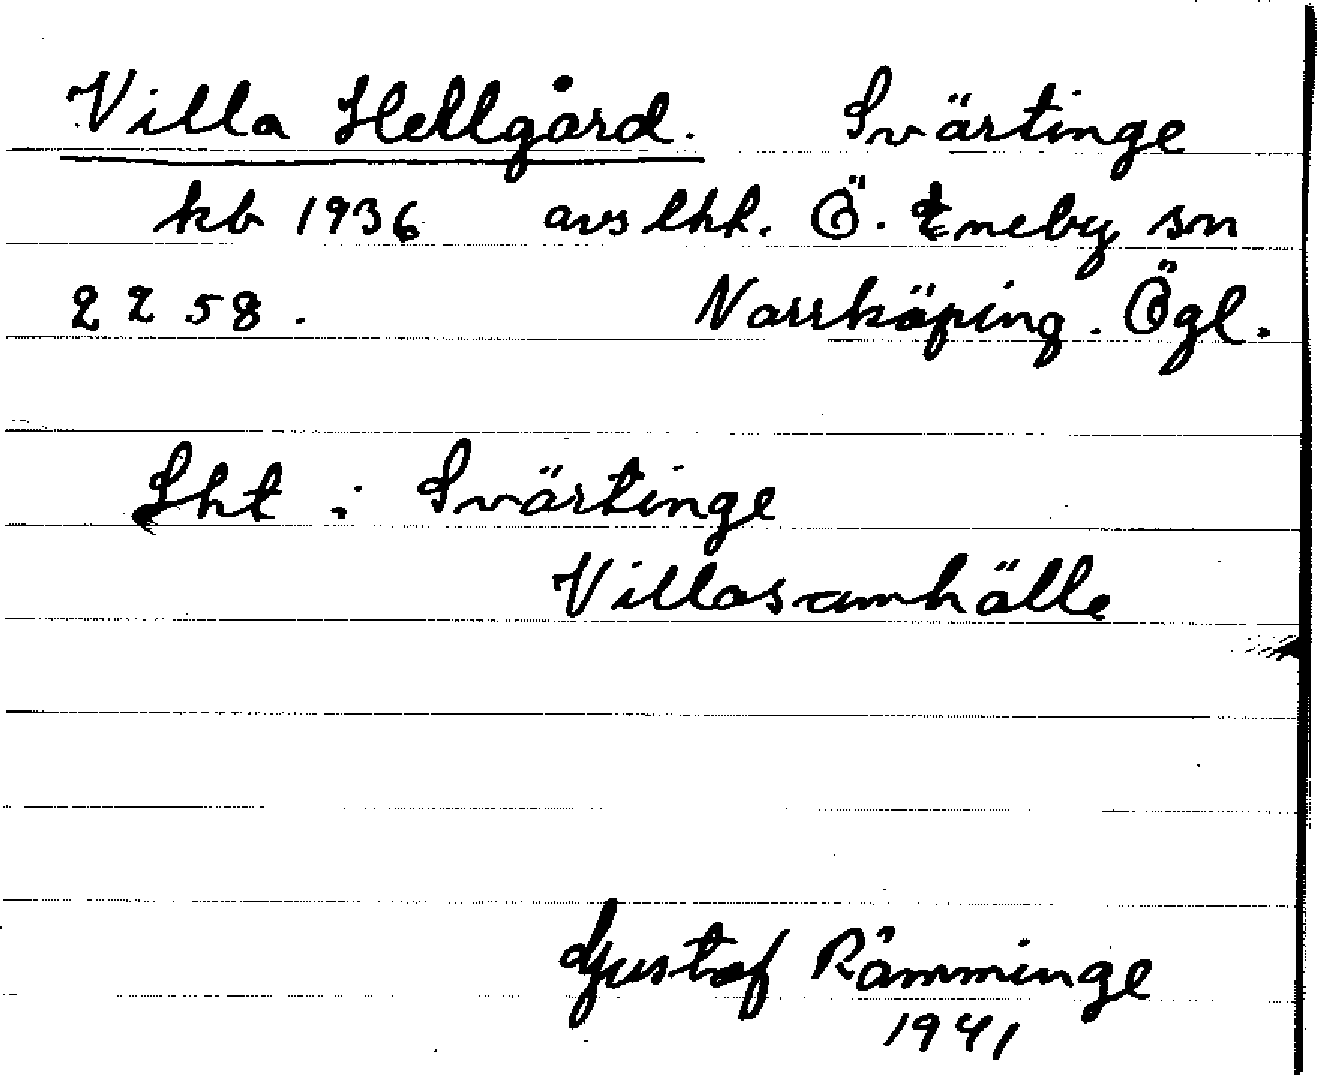 Villa Hellgård. Svärtinge
kb 1936 avs lhk. Ö. Eneby sn
2258. Norrköping. Ögl.
Lht i Svärtinge
Villasamhälle
Gustaf Rämminge
1941